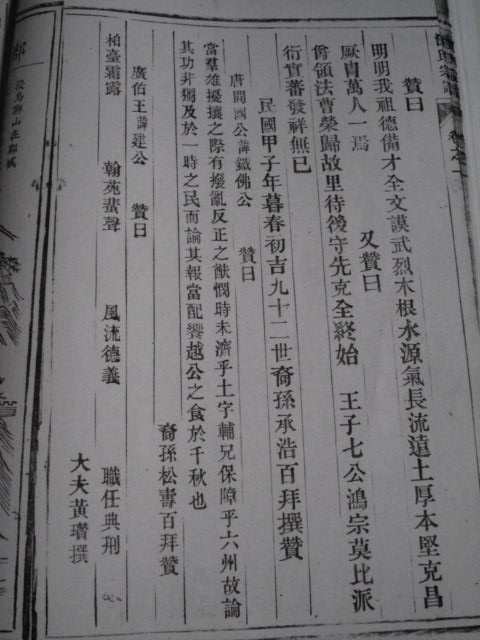 贊曰
明明我祖德備才全文謨武烈木根水源氣長流遠土厚本堅克昌
厥胄萬人一焉　又贊曰
爵領法曹榮歸故里待後守先克全終始　王子七公鴻宗莫比派
衍實蕃發祥無已
民國甲子年暮春初吉九十二世裔孫承浩百拜撰贊
唐開國公諱鐵佛公　贊曰
當羣雄擾攘之際有撥亂反正之猷憫時未濟乎土宇輔兄保障乎六州故論
其功非獨及於一時之民而論其報當配饗越公之食於千秋也
裔孫松壽百拜贊
廣伯王諱建公　贊曰
柏臺霜露　翰苑蜚聲　風流德義　職任典刑
大夫黃瓚撰